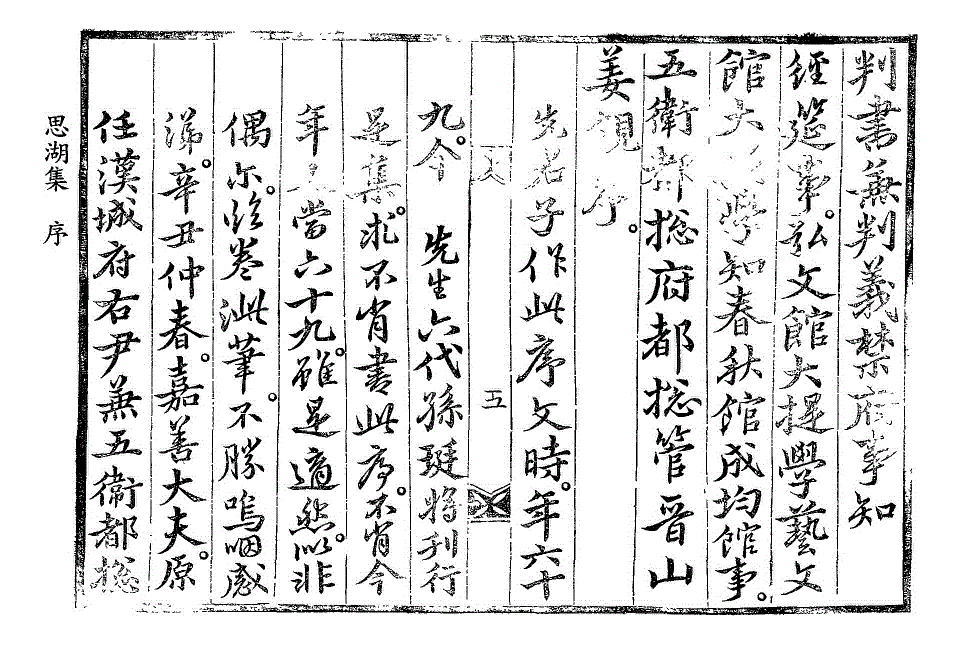 判書兼判義禁府事知
經筵事。弘文館大提學藝文
館大提學知春秋館成均館事。
五衛都捴府都捴管晉山
姜 序。
先君子作此序文時。年六十
五
九。今 先生六代孫珽將刊行
是集。求不肖書此序。不肖今
年又當六十九。雖是適然。似非
偶尒。臨卷泚筆。不勝嗚咽感
涕。辛丑仲春。嘉善大夫。原
任漢城府右尹兼五衛都捴
思湖集 序